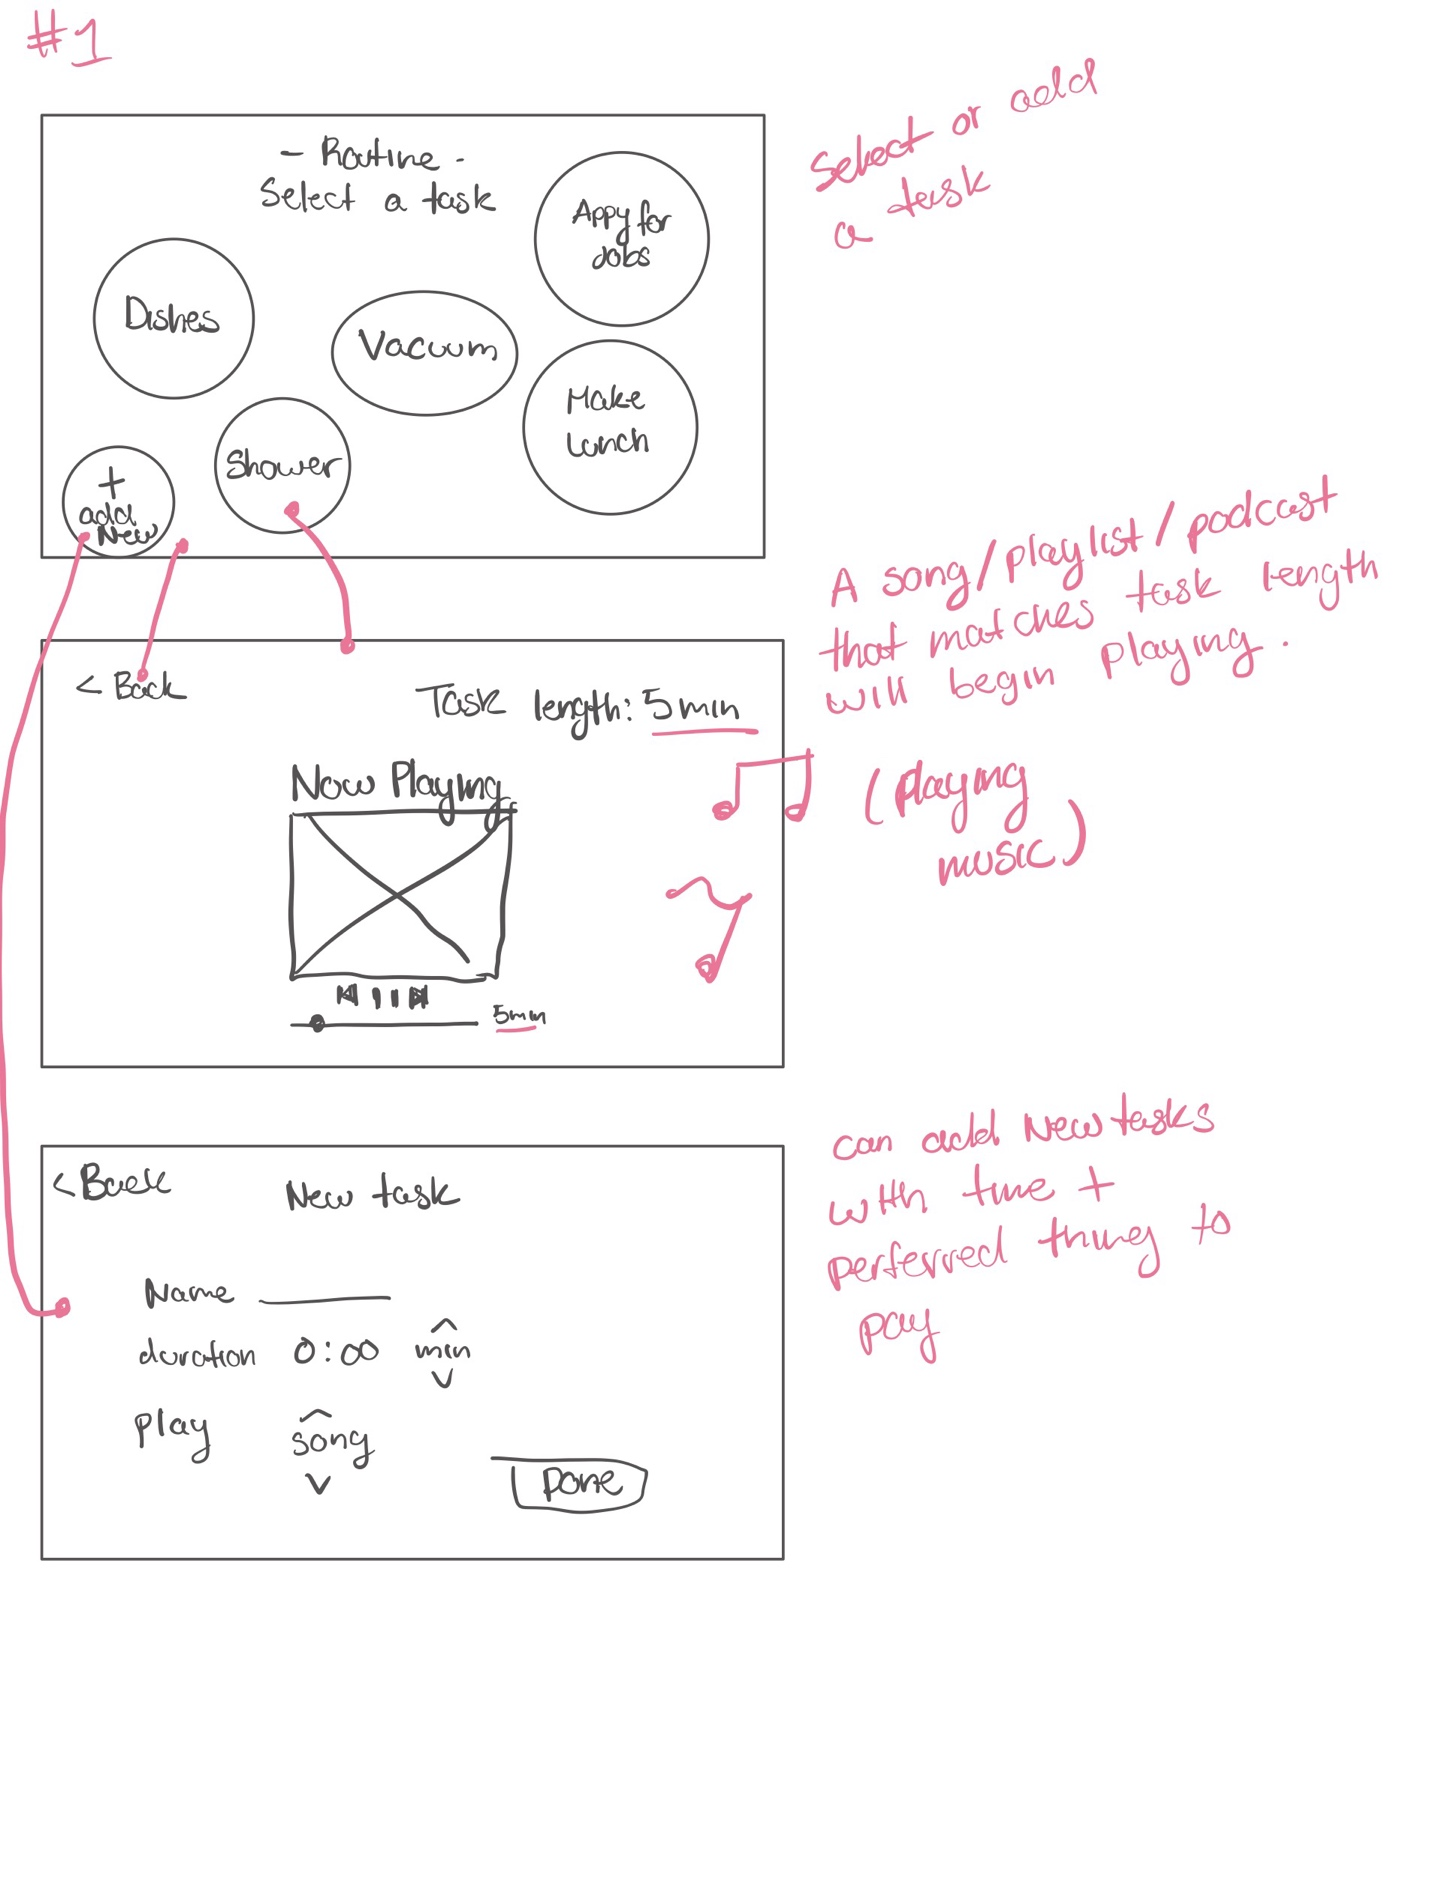 #1
- Routine -
Select a task
Appy for
Jobs
Dishes
Vacuum
Make
Lunch
Shower
+
add
New
Select or add
a task
< Back
Task length: 5 min
Now Playing
5min
A song/playlist/podcast
that matches task length
will begin playing.
(playing
music)
< Back
New task
Name
duration 0:00 min
play song
Done
can add New tasks
with time +
perferred thing to
pay